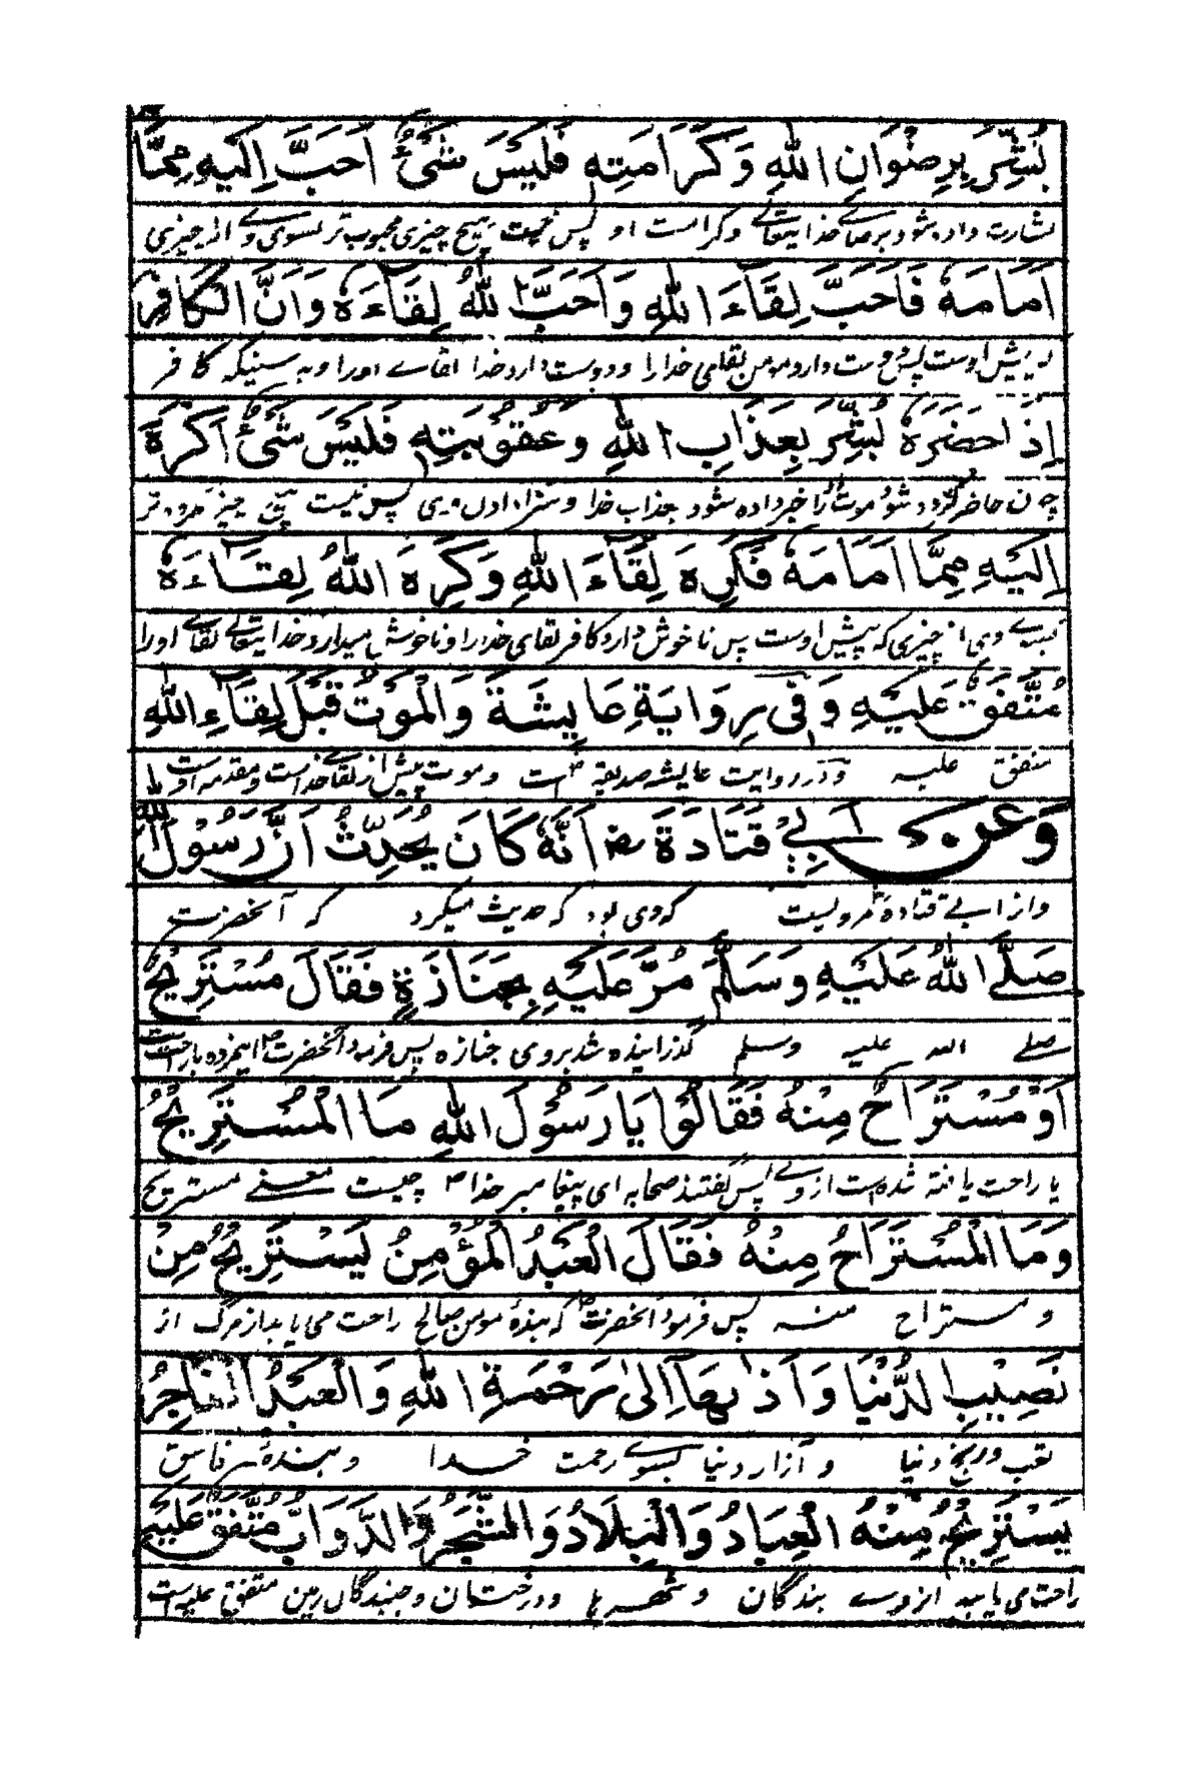 بُشِّرَ بِرِضْوَانِ اللهِ وَكَرَامَتِهِ فَلَيْسَ شَيْءٌ اَحَبَّ اِلَيْهِ مِمَّا
بشارت داده شود برضای خدا یتعالے وکرامت او پس نیست ہیچ چیزی محبوب تر بسوی وے از چیزی
اَمَامَهٗ فَاَحَبَّ لِقَاءَ اللهِ وَاَحَبَّ اللهُ لِقَاءَهٗ وَاَنَّ الْكَافِرَ
پیش اوست پس دوست دارد مومن لقای خدا را و دوست دارد خدا لقاے اورا و بدرستیکه کافر
اِذَا حَضَرَهٗ بُشِّرَ بِعَذَابِ اللهِ وَعُقُوْبَتِهٖ فَلَيْسَ شَيْءٌ اَكْرَهَ
چون حاضر شود موت را خبر داده شود بعذاب خدا و سزا دادن وی پس نیست ہیچ چیز مکروه تر
اِلَيْهِ مِمَّا اَمَامَهٗ فَكَرِهَ لِقَاءَ اللهِ وَكَرِهَ اللهُ لِقَاءَهٗ
بسوے وی از چیزی که پیش اوست پس ناخوش دارد کافر لقای خدا را و ناخوش میدارد خدا یتعالے لقاے اورا
مُتَّفَقٌ عَلَيْهِ وَفِي رِوَايَةِ عَايِشَةَ وَالْمَوْتُ قَبْلَ لِقَاءِ اللهِ
متفق علیه و در روایت عایشه صدیقه است و موت پیش از لقاے خداست و مقدمه اوست
وَعَنْ اَبِيْ قَتَادَةَ رض اَنَّهٗ كَانَ يُحَدِّثُ اَنَّ رَسُوْلَ اللهِ
و از ابے قتاده مرویست که وی بود که حدیث میکرد که آنحضرت
صَلَّى اللهُ عَلَيْهِ وَسَلَّمَ مُرَّ عَلَيْهِ بِجَنَازَةٍ فَقَالَ مُسْتَرِيْحٌ
صلے الله علیه وسلم گذرانیده شد بروی جنازه پس فرمود آنحضرت اینمرده باراحت است
اَوْ مُسْتَرَاحٌ مِنْهُ فَقَالُوْا يَا رَسُوْلَ اللهِ مَا الْمُسْتَرِيْحُ
یا راحت یافته شده است ازوے پس گفتند صحابه ای پیغامبر خدا چیست معنے مستریح
وَمَا الْمُسْتَرَاحُ مِنْهُ فَقَالَ الْعَبْدُ الْمُؤْمِنُ يَسْتَرِيْحُ مِنْ
و مستراح منه پس فرمود آنحضرت که بندۂ مومن صالح راحت می یابد از مرگ از
نَصِيْبِ الدُّنْيَا وَاَذَاهَا اِلٰى رَحْمَةِ اللهِ وَالْعَبْدُ الْفَاجِرُ
تعب و رنج دنیا و آزار دنیا بسوے رحمت خدا و بندۂ فاسق
يَسْتَرِيْحُ مِنْهُ الْعِبَادُ وَالْبِلَادُ وَالشَّجَرُ وَالدَّوَابُّ مُتَّفَقٌ عَلَيْهِ
راحت می یابد ازوے بندگان و شهرها و درختان و جنبندگان زمین متفق علیه است